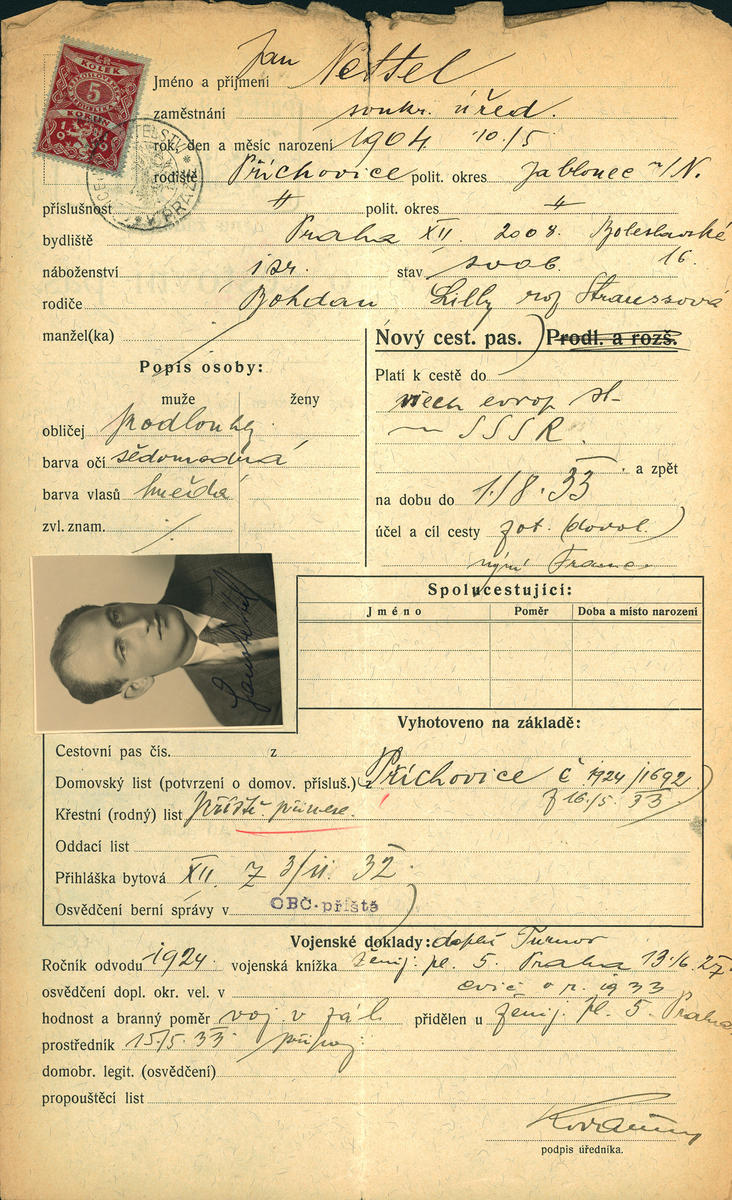 KOLEK
5
KORUN
Jméno a příjmení Jan Nettel
zaměstnání soukr. úřed.
rok, den a měsíc narození 1904 10/5
rodiště Příchovice polit. okres Jablonec n/N.
příslušnost " polit. okres "
bydliště Praha XII. 2008. Boleslavská 16.
náboženství isr. stav svob.
rodiče Bohdan Lilly roz Straussová
manžel(ka)
Popis osoby:
muže ženy
obličej podlouhlý.
barva očí šedomodrá
barva vlasů hnědá
zvl. znam. ./.
Nový cest. pas. Prodl. a rozš.
Platí k cestě do
všech evrop st
SSSR.
a zpět
na dobu do 1./8. 33
účel a cíl cesty zot. (dovol.)
nyní
Spolucestující:
Jméno Poměr Doba a místo narození
Vyhotoveno na základě:
Cestovní pas čís. z
Domovský list (potvrzení o domov. přísluš.) z Příchovice č 1924/1692
z 16./5. 33
Křestní (rodný) list příště přinese.
Oddací list
Přihláška bytová XII. z 3/II. 32.
Osvědčení berní správy v OBČ. příště
Vojenské doklady: doplň Turnov
Ročník odvodu 1924. vojenská knížka ženij. pl. 5. Praha 13./6. 27
osvědčení dopl. okr. vel. v cvič o r. 1933
hodnost a branný poměr voj. v zál. přidělen u ženij. pl. 5. Praha
prostředník 15/5. 33
domobr. legit. (osvědčení)
propouštěcí list
podpis úředníka.